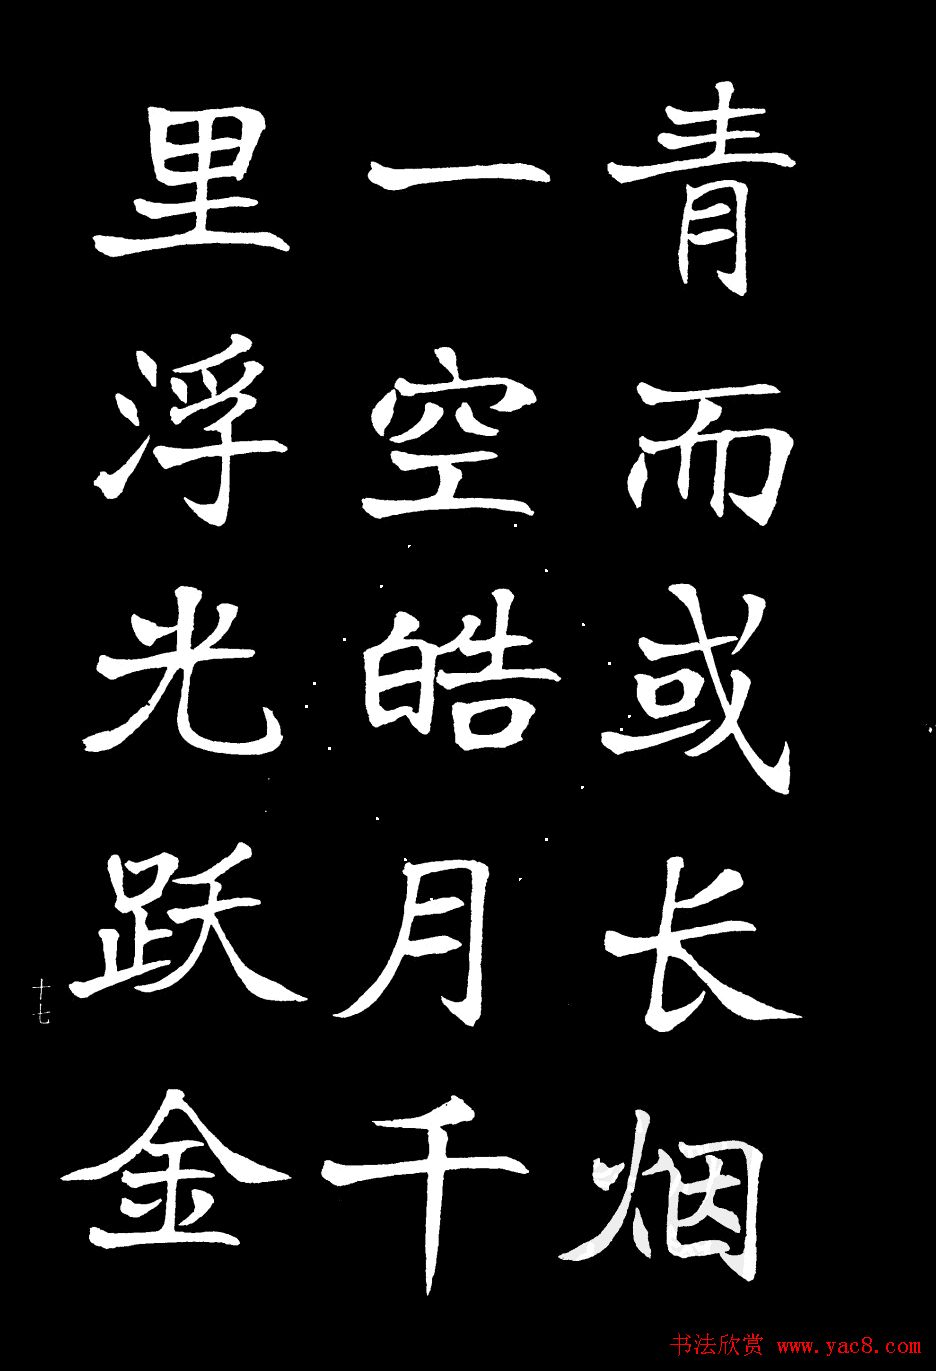 青而或长烟
一空皓月千
里浮光跃金
十七
书法欣赏 www.yac8.com